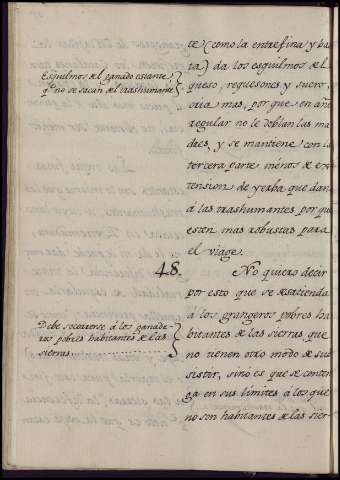 te (como la entrefina y bas
ta) da los esquilmos del
queso, requesones y suero,
cria mas, por que en año
regular no le doblan las ma
dres, y se mantiene con la
tercera parte menos de ex
tension de yerba que dan
á las trashumantes por que
esten mas robustas para
el viage.
Esquilmos del ganado estante
qe. no se sacan del trashumante
48.
No quiero decir
por esto que se desatienda
á los grangeros pobres ha
bitantes de las sierras que
no tienen otro modo de sub
sistir, sino es que se conten
ga en sus limites á los que
no son habitantes de las sier-
Debe socorrerse á los ganade
ros pobres habitantes de las
sierras